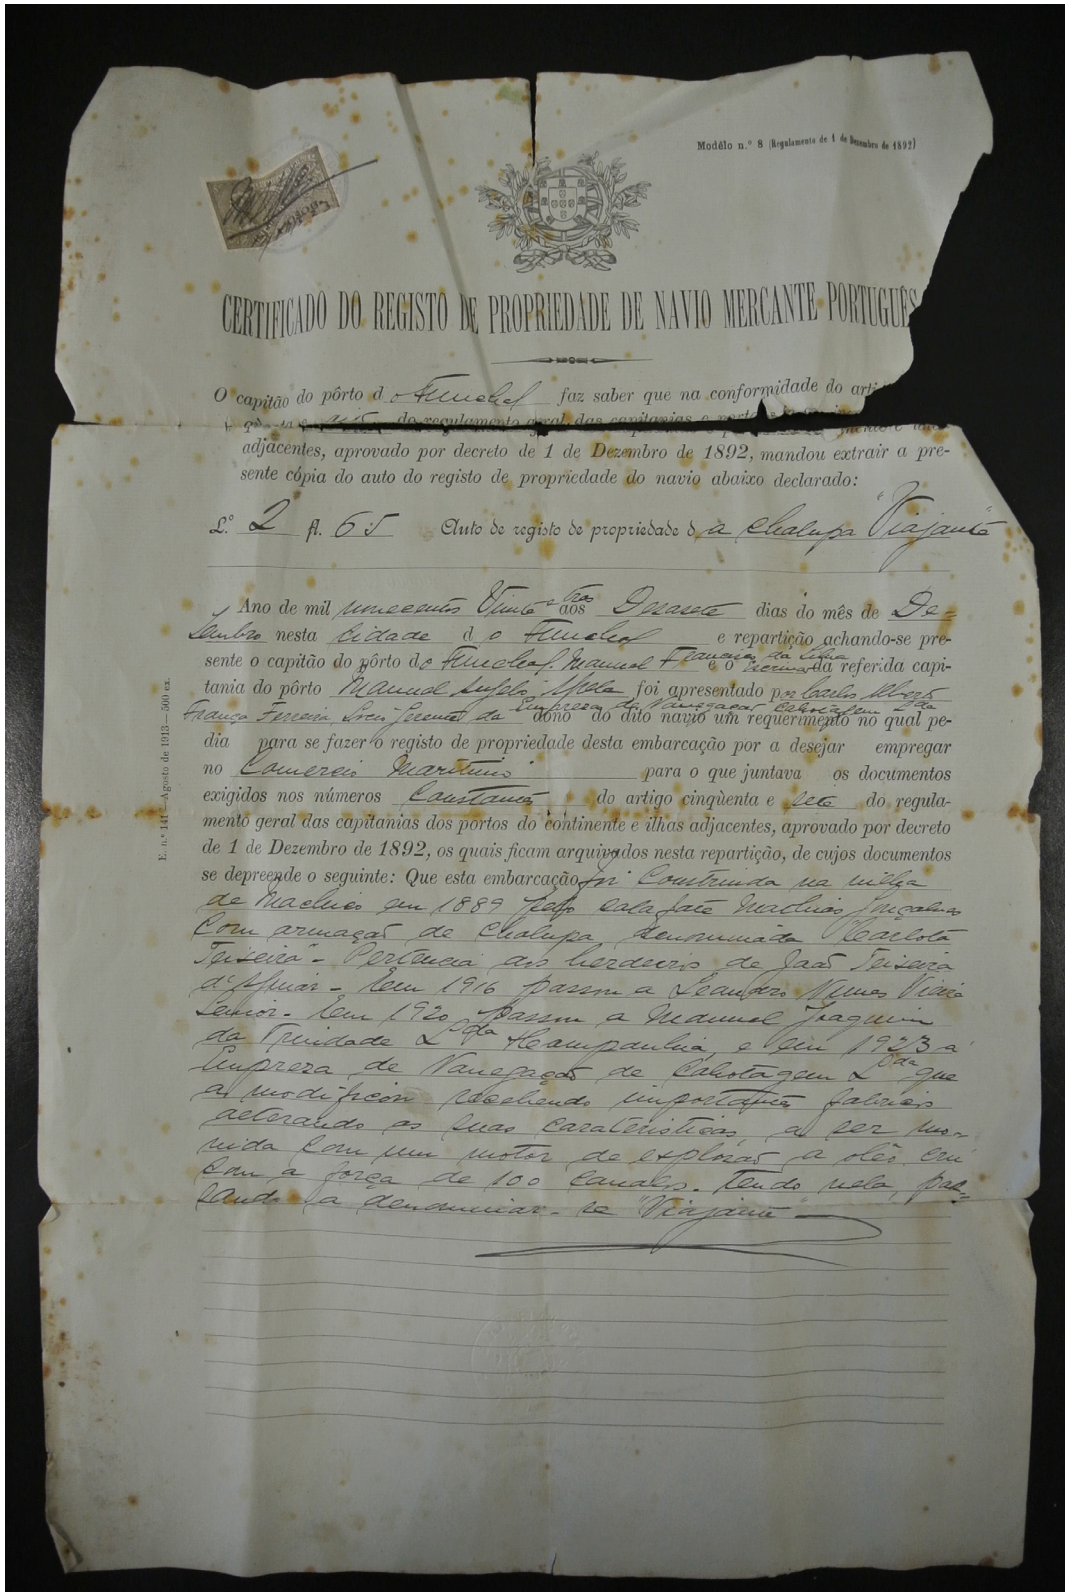 Modêlo n.º 8 (Regulamento de 1 de Dezembro de 1892)
CERTIFICADO DO REGISTO DE PROPRIEDADE DE NAVIO MERCANTE PORTUGUÊS
O capitão do pôrto do Funchal faz saber que na conformidade do arti
do regulamento geral das capitanias e portos
adjacentes, aprovado por decreto de 1 de Dezembro de 1892, mandou extrair a pre-
sente cópia do auto do registo de propriedade do navio abaixo declarado:
L.º 2 fl. 65 Auto de registo de propriedade da chalupa "Viajante"
Ano de mil novecentos Vinte e tres aos Desasete dias do mês de De-
sembro nesta cidade do Funchal e repartição achando-se pre-
sente o capitão do pôrto do Funchal, Manuel Francisco da Silva e o escrivão da referida capi-
tania do pôrto Manuel foi apresentado por Carlos Alberto
França Ferreira Socio Gerente da Empreza de Navegação Cabotagem L.da dono do dito navio um requerimento no qual pe-
dia para se fazer o registo de propriedade desta embarcação por a desejar empregar
no Comercio Maritimo para o que juntava os documentos
exigidos nos números Constantes do artigo cinqüenta e sete do regula-
mento geral das capitanias dos portos do continente e ilhas adjacentes, aprovado por decreto
de 1 de Dezembro de 1892, os quais ficam arquivados nesta repartição, de cujos documentos
se depreende o seguinte: Que esta embarcação foi Construida na villa
de Machico em 1889 pelo calafate Mathias Gonçalves
Com armação de Chalupa denominada "Carlota
Teixeira" - Pertencia aos herdeiros de João Teixeira
d'Aguiar - Em 1916 passou a Leandro Nunes Vieira
Senior - Em 1920 passou a Manuel Joaquim
da Trindade & Companhia L.da e em 1923 á
Empreza de Navegação de Cabotagem L.da que
a modificou recebendo importantes fabricos
alterando as suas caratéristicas, a ser mo-
vida com um motor de explosão a oleo crú
com a força de 100 cavalos. Tendo nela, pas-
sando a denominar-se "Viajante"
E. n.º 141—Agosto de 1913—500 ex.